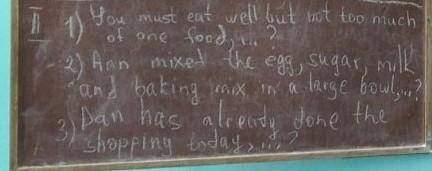 II 1) You must eat well but not too much
of one food,...?
2) Ann mixed the egg, sugar, milk
and baking mix in a large bowl,...?
3) Dan has already done the
shopping today,...?